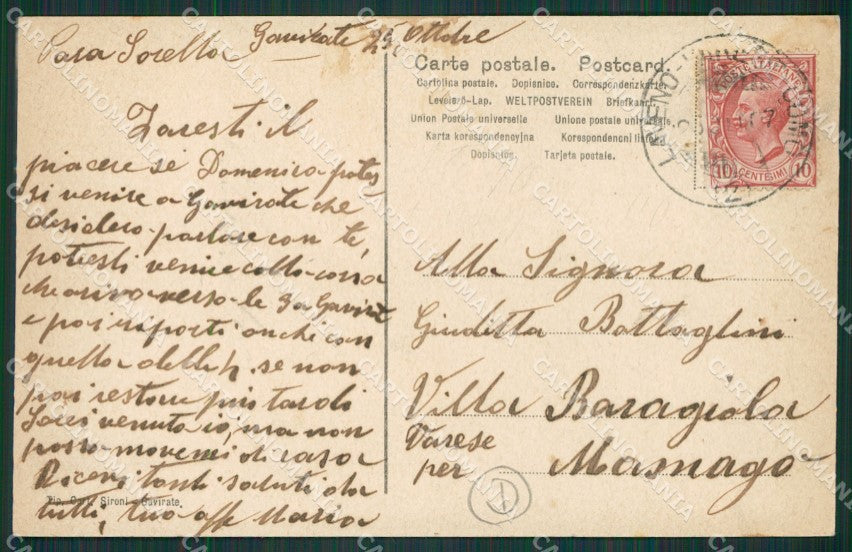 Gavirate 25 Ottobre
Cara Sorella
Faresti il
piacere se Domenica potes
si venire a Gavirate che
desidero parlare con te,
potresti venire colla corsa
che arriva verso le 3 a Gavirate
e poi riparti anche con
quella delle 4, se non
poi restare più tardi
Sarei venuta io, ma non
posso movermi di casa
Ricevi tanti saluti da
tutti, tua aff Maria
Tip. Sironi - Gavirate
Carte postale. Postcard.
Cartolina postale. Dopisnice. Correspondenzkarte
Levelező-Lap. WELTPOSTVEREIN Briefkaart
Union Postale universelle Unione postale universale
Karta korespondencyjna Korespondenčni lístek
Dopisnice. Tarjeta postale.
LAVENO-COMO
POSTE ITALIANE
10 CENTESIMI 10
Alla Signora
Giuditta Battaglini
Villa Baragiola
Varese
per Masnago
CARTOLINOMANIA